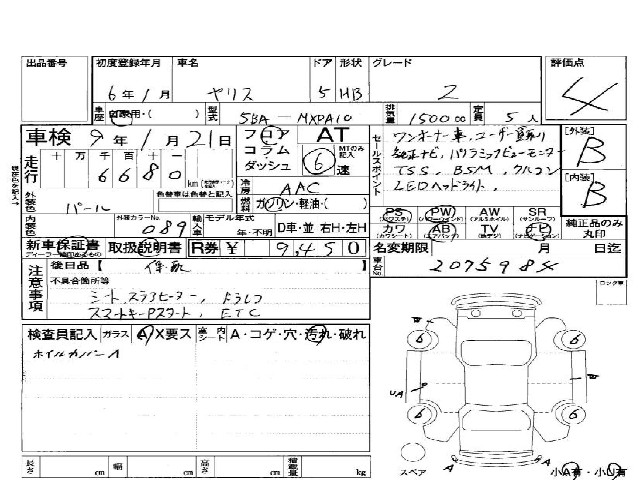 出品番号 初度登録年月 車名 ドア 形状 グレード 評価点
6年1月 ヤリス 5 HB Z 4
車歴 自家用・( ) 型式 5BA-MXPA10 排気量 1500cc 定員 5人
車検 9年1月21日 フロア AT
コラム MTのみ記入
ダッシュ 6速
走行 十万千百十一
6680 km
冷房 AAC
燃料 ガソリン・軽油・( )
セールスポイント
ワンオーナー車、ユーザー買取り
純正ナビ、パノラミックビューモニター
TSS、BSM、クルコン
LEDヘッドライト、
[外装] B
[内装] B
外装色 パール 色替車は色替と記入
内装色 外装カラーNo. 089 輸入車 モデル年式 年・不明 D車・並 右H・左H
PS PW AW SR
カワ AB TV
純正品のみ丸印
新車保証書 取扱説明書 R券 ¥ 9450 名変期限 月 日迄
注意事項
後日品【 】
車台No. 2075984
不具合箇所等
シート、ステアヒーター、ドラレコ
スマートキーPスタート、ETC
検査員記入 ガラス A X要ス 室内 A・コゲ・穴・汚れ・破れ
ホイルカバーA
ロック車
6 6
UA
6 6
スペア A A 小A有・小U有
長さ cm 幅 cm 高さ cm 積載量 kg